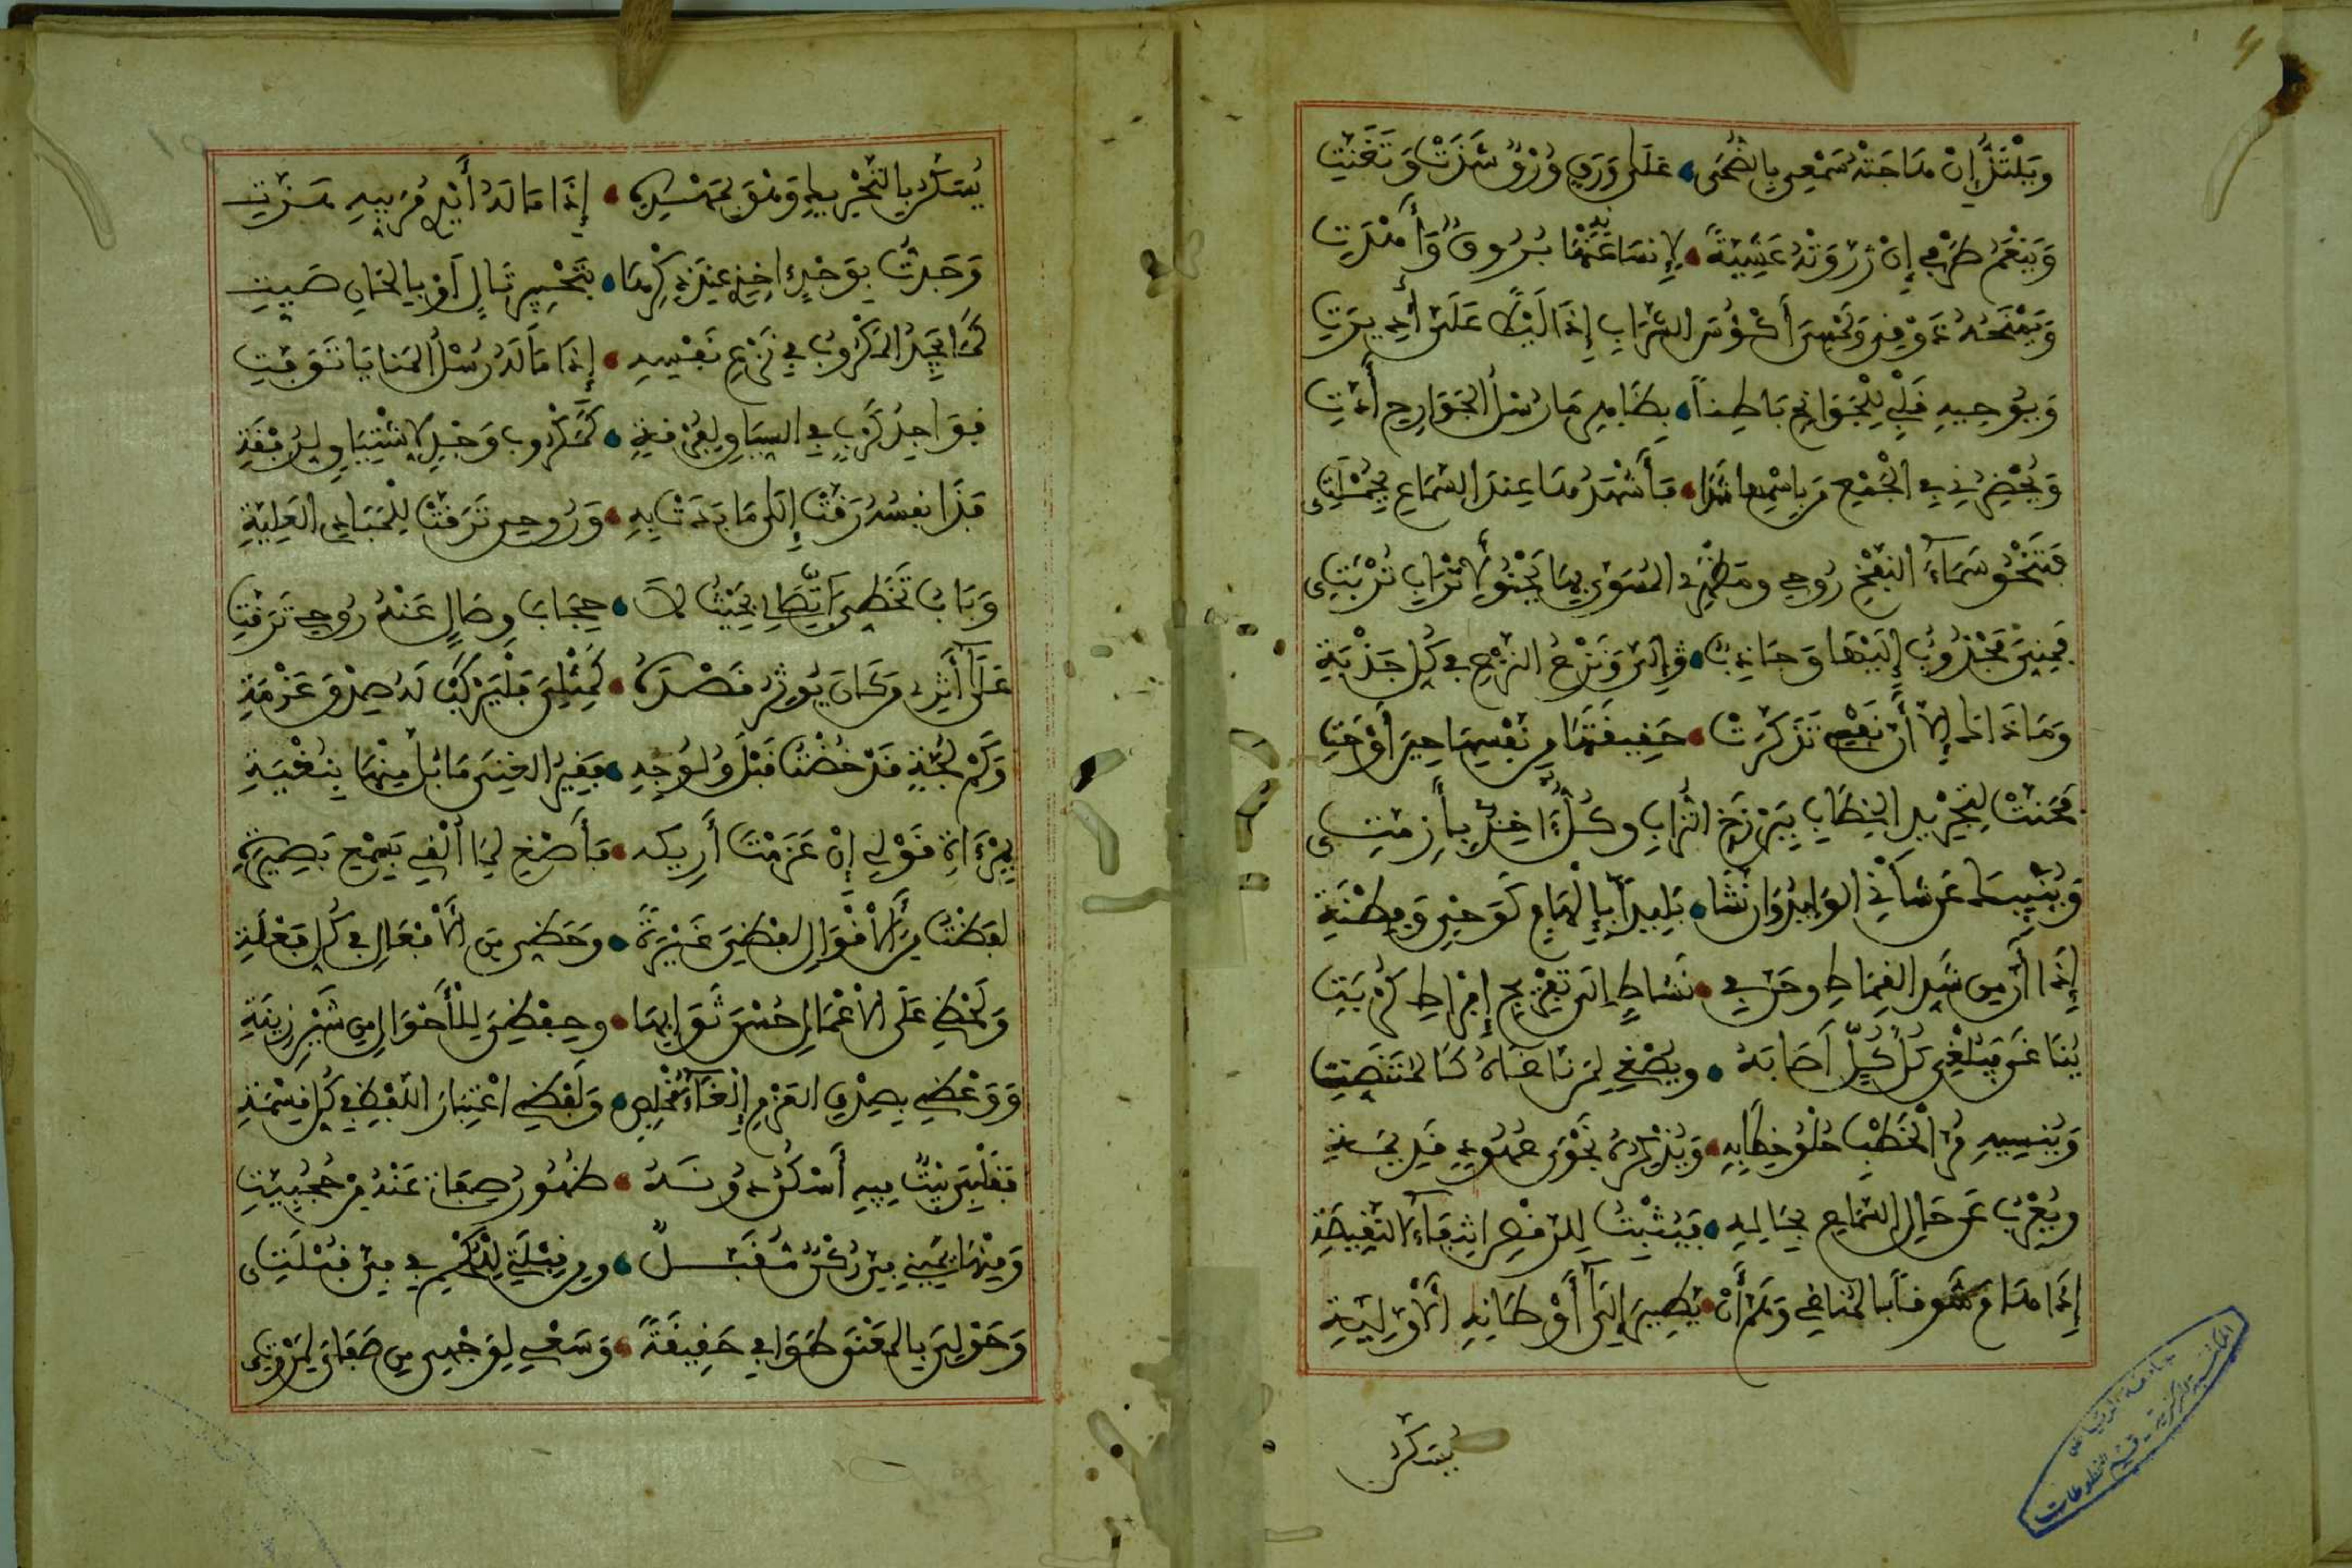 ويلتذ إن هاجته سمعي بالضحى على ورق ورق شدت وتغنت
وينعم طرفي إن روته عشية لإنسانه عنها بروق وأهدت
ويمنحه ذوقي ولمسي أكؤس الشراب إذا ليلا علي أديرت
ويوحيه قلبي للجوانح باطنا بظاهر ما رسل الجوارح أدت
ويحضرني في الجمع من باسمها شدا فأشهدها عند السماع بجملتي
فتنحو سماء النفخ روحي ومظهري المسوى بها يحنو لأتراب تربتي
فمني مجذوب إليها وجاذب إليه ونزع النزع في كل جذبة
وما ذاك إلا أن نفسي تذكرت حقيقتها من نفسها حين أوحت
فحنت لتجريد الخطاب ببرزخ التراب وكل آخذ بأزمتي
وينبيك عن شأني الوليد وإن نشا بليدا بإلهام كوحي وفطنة
إذا أن من شد القماط وحن في نشاط إلى تفريج إفراط كربة
يناغى فيلغي كل كل أصابه ويصغي لمن ناغاه كالمتنصت
وينسيه مر الخطب حلو خطابه ويذكره نجوى عهود قديمة
ويعرب عن حال السماع بحاله فيثبت للرقص انتفاء النقيصة
إذا هام شوقا بالمناغي وهم أن يطير إلى أوطانه الأولية
يسكن
المكتبة المركزية - قسم المخطوطات
جامعة الرياض
يسكن بالتحريك وهو بمهده إذا ما له أيدي مربيه هزت
وجدت بوجد آخذي عند ذكرها بتحبير تال أو بالحان صيت
كما يجد المكروب في نزع نفسه إذا ما له رسل المنايا توفت
فواجد كرب في السياق لفرقة كمكروب وجد لاشتياق لرفقة
فذا نفسه رقت إلى ما بدت به وروحي ترقت للمبادي العلية
وباب تخطي اتصالي بحيث لا حجاب وصال عنه روحي ترقت
على أثري من كان يوثر قصده كمثلي فليركب له صدق عزمة
وكم لجة قد خضت قبل ولوجه فقير الغنى ما بل منها بنغبة
بمرءاة قولي إن عزمت أريكه فأصغ لما ألقي بسمع بصيرة
لفظت من الأقوال لفظي عبرة وحظي من الأفعال في كل فعلة
ولحظي على الأعمال حسن ثوابها وحفظي للأحوال من شين زينة
ووعظي بصدق العزم إلغاء مخلص ولفظي اعتبار اللفظ في كل قسمة
بقلبي بيت فيه أسكن دونه ظهور صفاتي عنه من حجبيت
ومنها يميني في ركن مقبل ومن قبلتي للحكم في في قبلتي
وحولي بالمعنى طوافي حقيقة وسعيي لوجهي من صفائي لمروتي